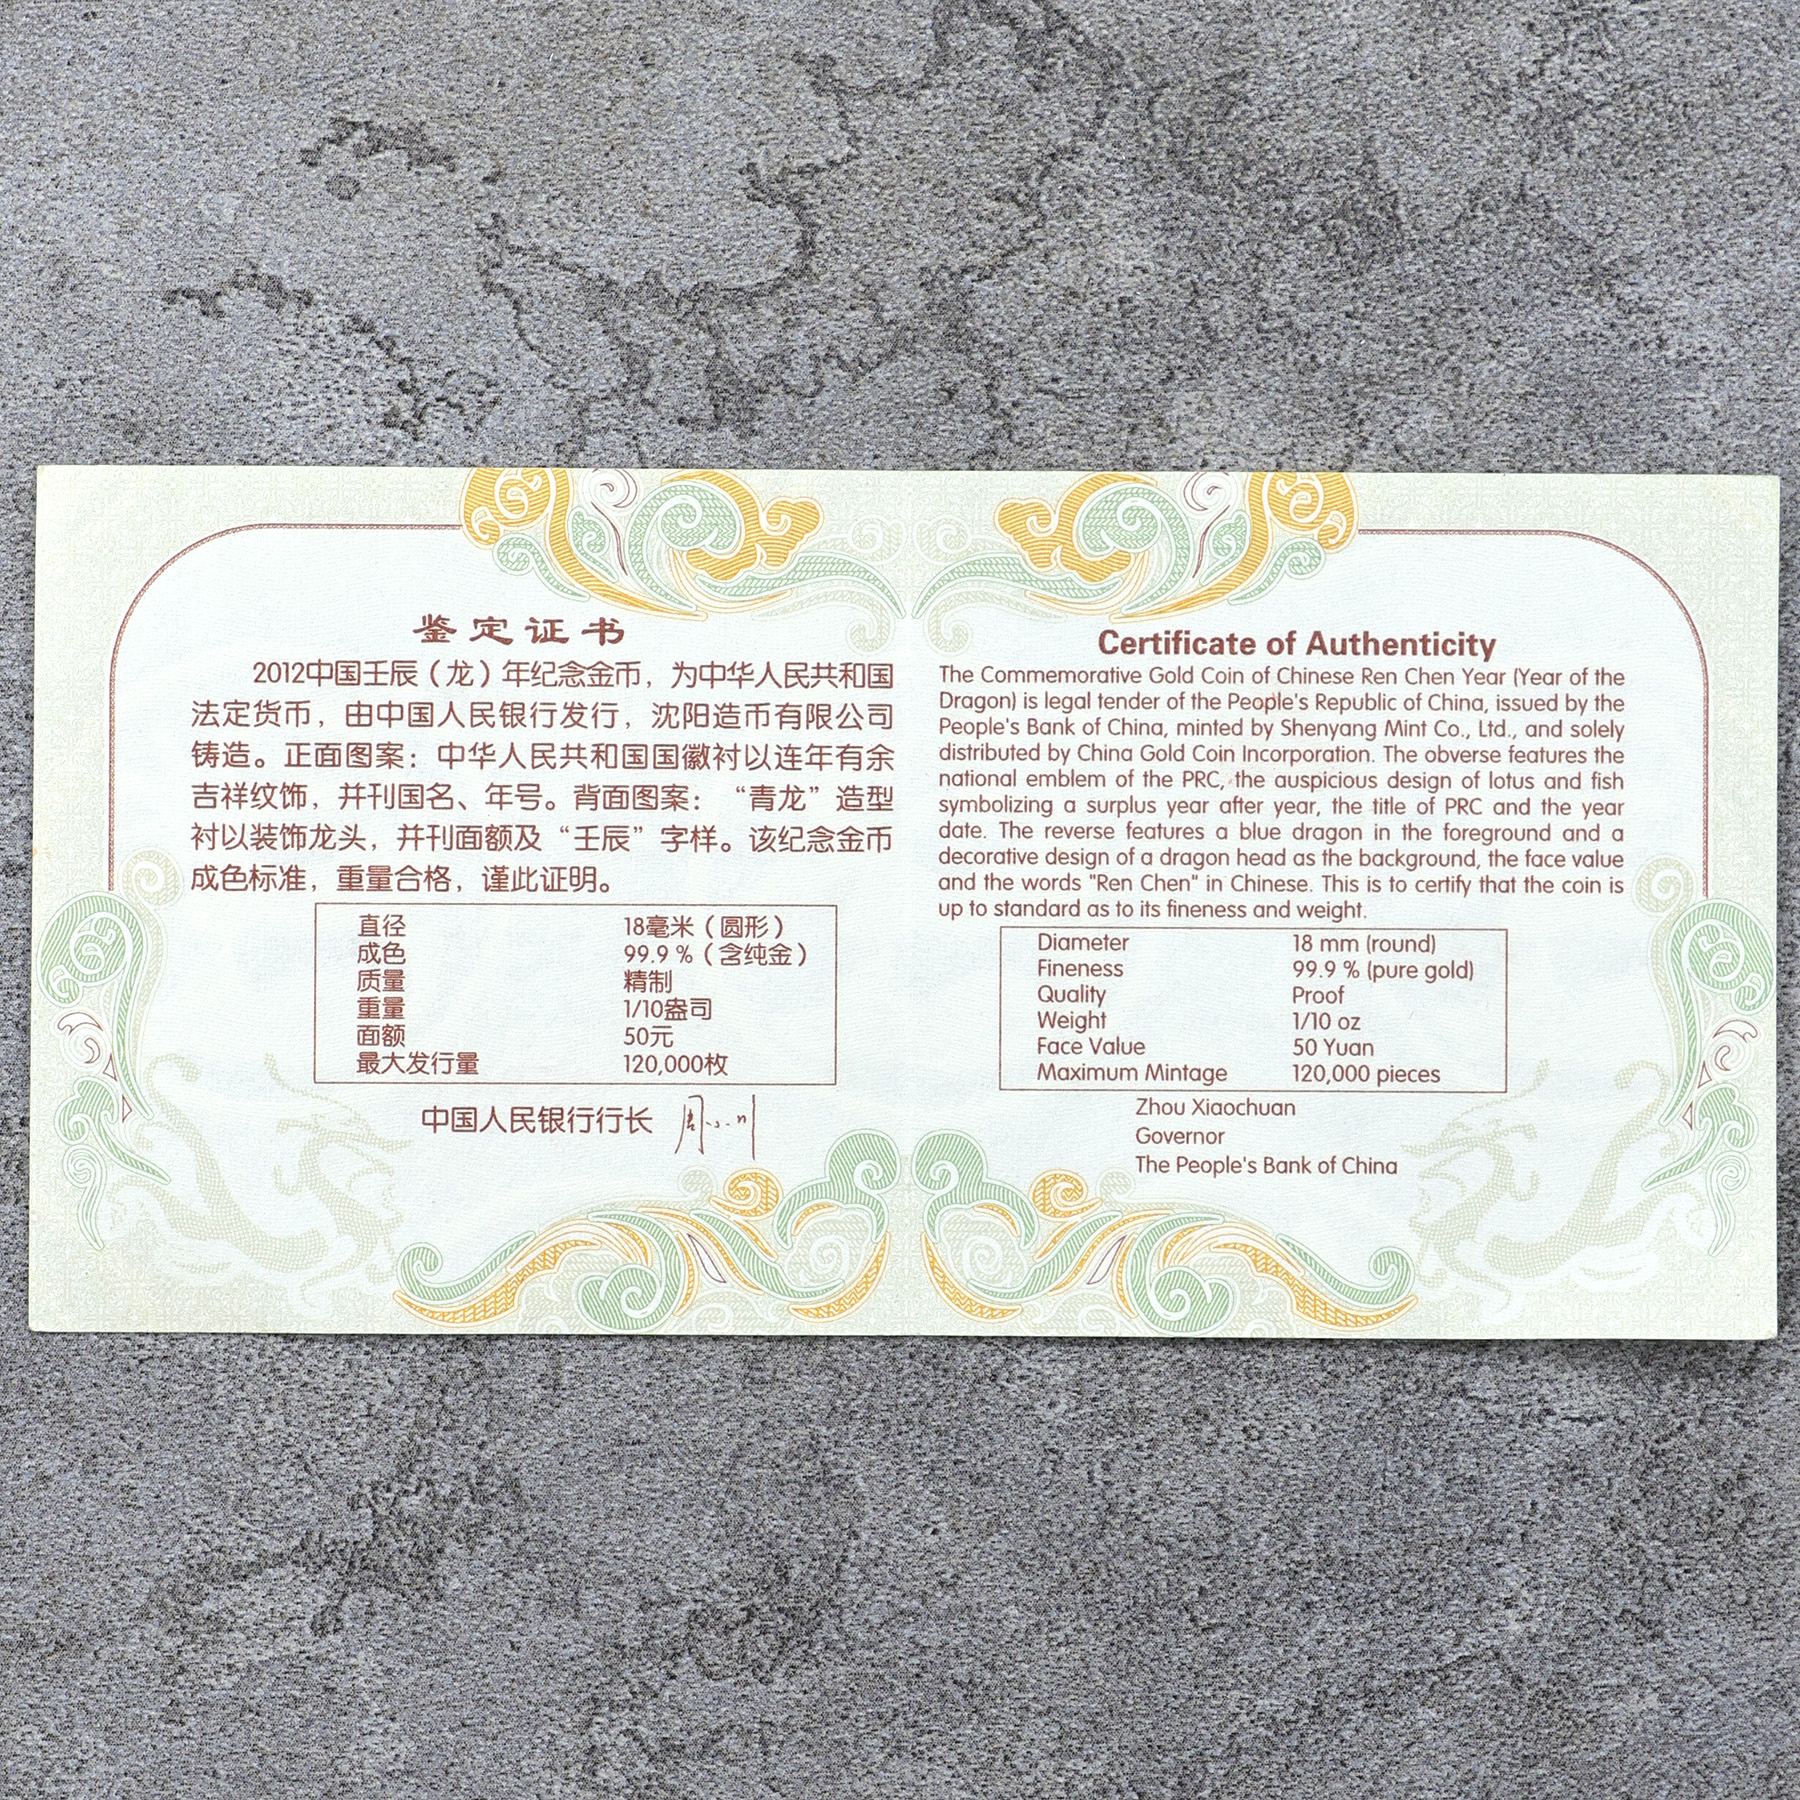 鉴定证书
2012中国壬辰（龙）年纪念金币，为中华人民共和国
法定货币，由中国人民银行发行，沈阳造币有限公司
铸造。正面图案：中华人民共和国国徽衬以连年有余
吉祥纹饰，并刊国名、年号。背面图案：“青龙”造型
衬以装饰龙头，并刊面额及“壬辰”字样。该纪念金币
成色标准，重量合格，谨此证明。
直径 18毫米（圆形）
成色 99.9％（含纯金）
质量 精制
重量 1/10盎司
面额 50元
最大发行量 120,000枚
中国人民银行行长 周小川
Certificate of Authenticity
The Commemorative Gold Coin of Chinese Ren Chen Year (Year of the
Dragon) is legal tender of the People's Republic of China, issued by the
People's Bank of China, minted by Shenyang Mint Co., Ltd., and solely
distributed by China Gold Coin Incorporation. The obverse features the
national emblem of the PRC, the auspicious design of lotus and fish
symbolizing a surplus year after year, the title of PRC and the year
date. The reverse features a blue dragon in the foreground and a
decorative design of a dragon head as the background, the face value
and the words "Ren Chen" in Chinese. This is to certify that the coin is
up to standard as to its fineness and weight.
Diameter 18 mm (round)
Fineness 99.9 % (pure gold)
Quality Proof
Weight 1/10 oz
Face Value 50 Yuan
Maximum Mintage 120,000 pieces
Zhou Xiaochuan
Governor
The People's Bank of China